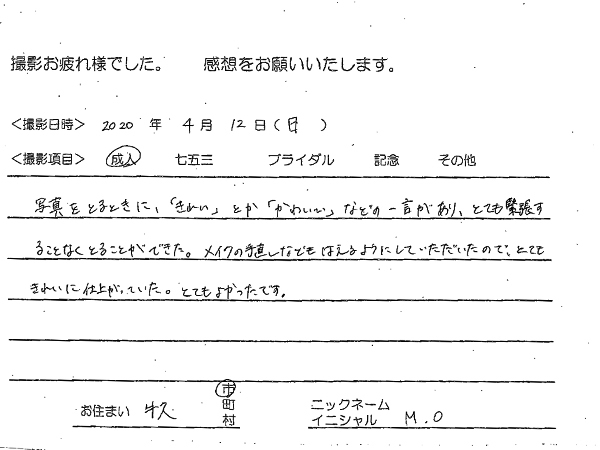 撮影お疲れ様でした。 感想をお願いいたします。
<撮影日時> 2020 年 4 月 12 日 (日)
<撮影項目> 成人 七五三 ブライダル 記念 その他
写真をとるときに、「きれい」とか「かわいい」などの一言があり、とても緊張す
ることなくとることができた。メイクの手直しなどもはえるようにしていただいたので、とても
きれいに仕上がっていた。とてもよかったです。
お住まい 牛久 市 町 村
ニックネーム イニシャル M.O